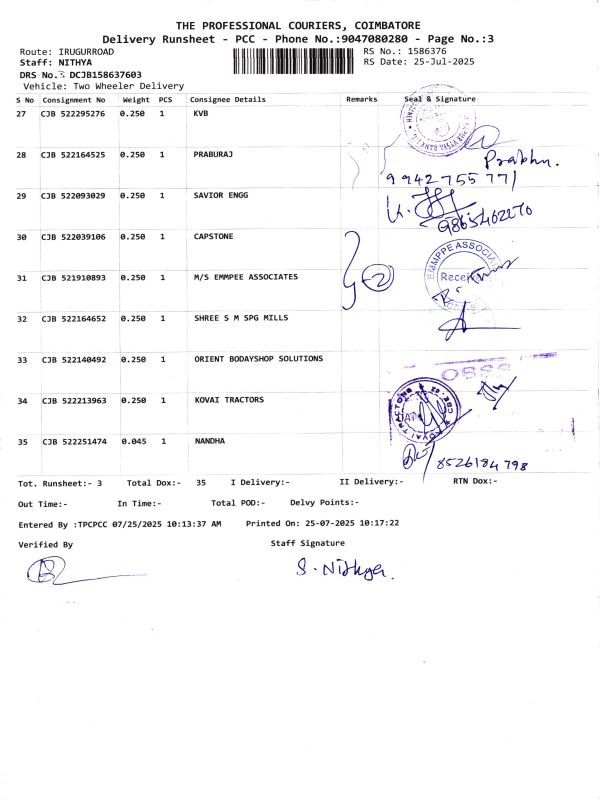 THE PROFESSIONAL COURIERS, COIMBATORE
Delivery Runsheet - PCC - Phone No.:9047080280 - Page No.:3
Route: IRUGURROAD
RS No.: 1586376
Staff: NITHYA
RS Date: 25-Jul-2025
DRS No.: DCJB158637603
Vehicle: Two Wheeler Delivery
S No Consignment No Weight PCS Consignee Details Remarks Seal & Signature
27 CJB 522295276 0.250 1 KVB
28 CJB 522164525 0.250 1 PRABURAJ
Prabhu.
9942755771
29 CJB 522093029 0.250 1 SAVIOR ENGG
30 CJB 522039106 0.250 1 CAPSTONE
EMMPPE ASSOCIA
31 CJB 521910893 0.250 1 M/S EMMPEE ASSOCIATES
2
32 CJB 522164652 0.250 1 SHREE S M SPG MILLS
33 CJB 522140492 0.250 1 ORIENT BODAYSHOP SOLUTIONS
34 CJB 522213963 0.250 1 KOVAI TRACTORS
KOVAI TRACTORS
35 CJB 522251474 0.045 1 NANDHA
8526184798
Tot. Runsheet:- 3 Total Dox:- 35 I Delivery:- II Delivery:- RTN Dox:-
Out Time:- In Time:- Total POD:- Delvy Points:-
Entered By :TPCPCC 07/25/2025 10:13:37 AM Printed On: 25-07-2025 10:17:22
Verified By Staff Signature
S. Nithya.